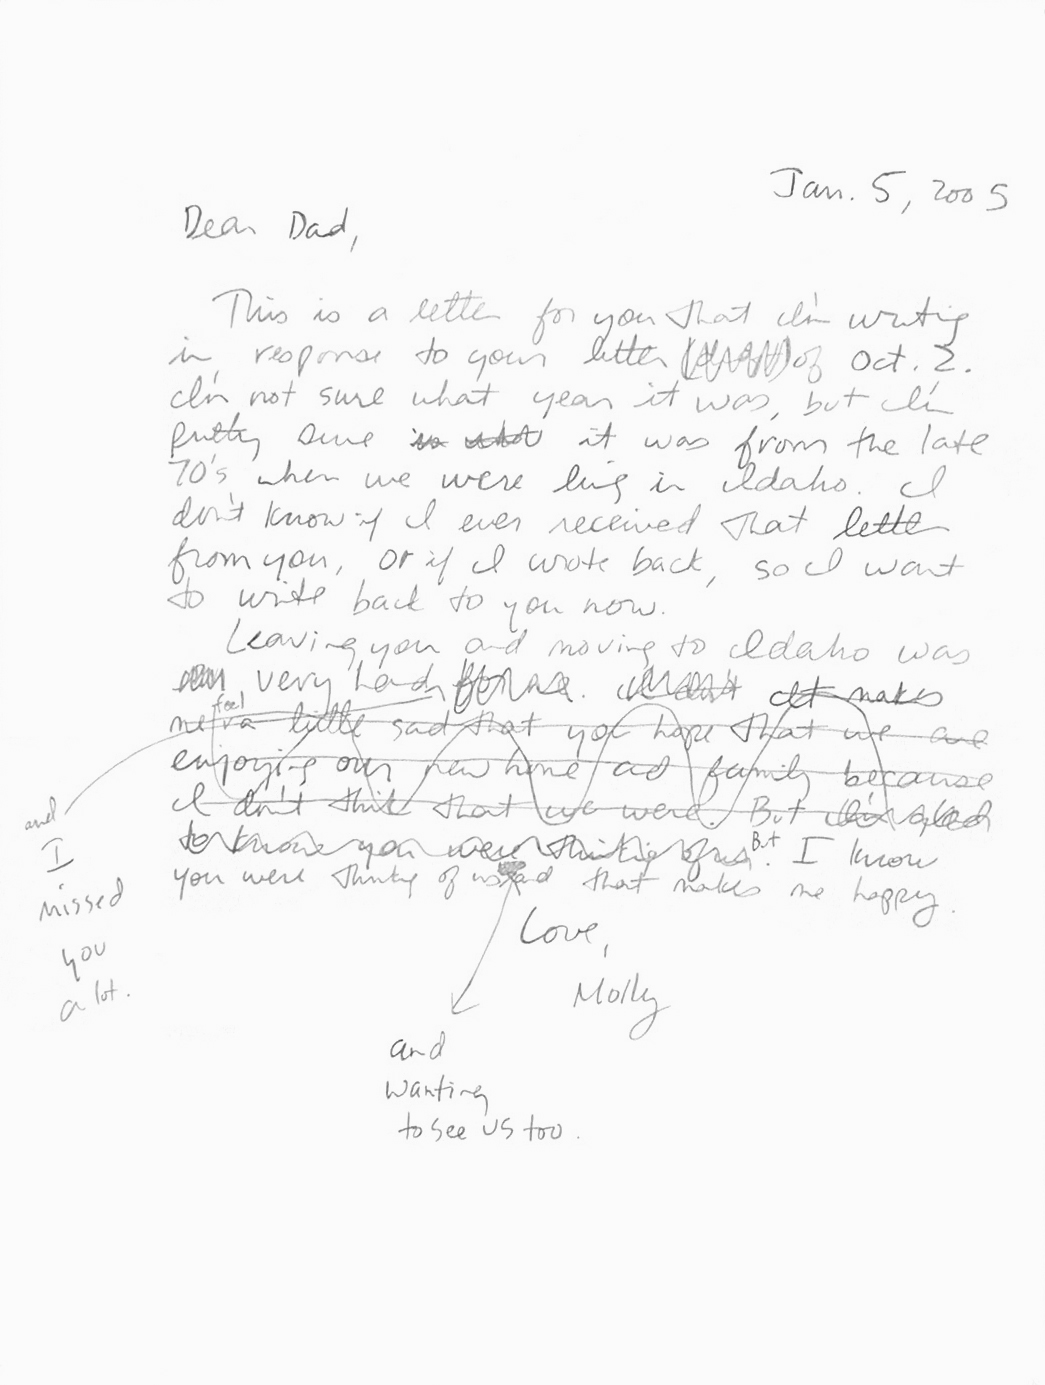 Jan. 5, 2005
Dear Dad,
This is a letter for you that I'm writing
in response to your letter of Oct. 2.
I'm not sure what year it was, but I'm
pretty sure it was from the late
70's when we were living in Idaho. I
don't know if I ever received that letter
from you, or if I wrote back, so I want
to write back to you now.
Leaving you and moving to Idaho was
very hard for me. It makes
me feel a little sad that you hope that we are
enjoying our new home and family because
I don't think that we were. But I'm glad
to know you were thinking of us. But I know
you were thinking of us and that makes me happy.
and
I
missed
you
a lot.
Love,
Molly
and
wanting
to see us too.